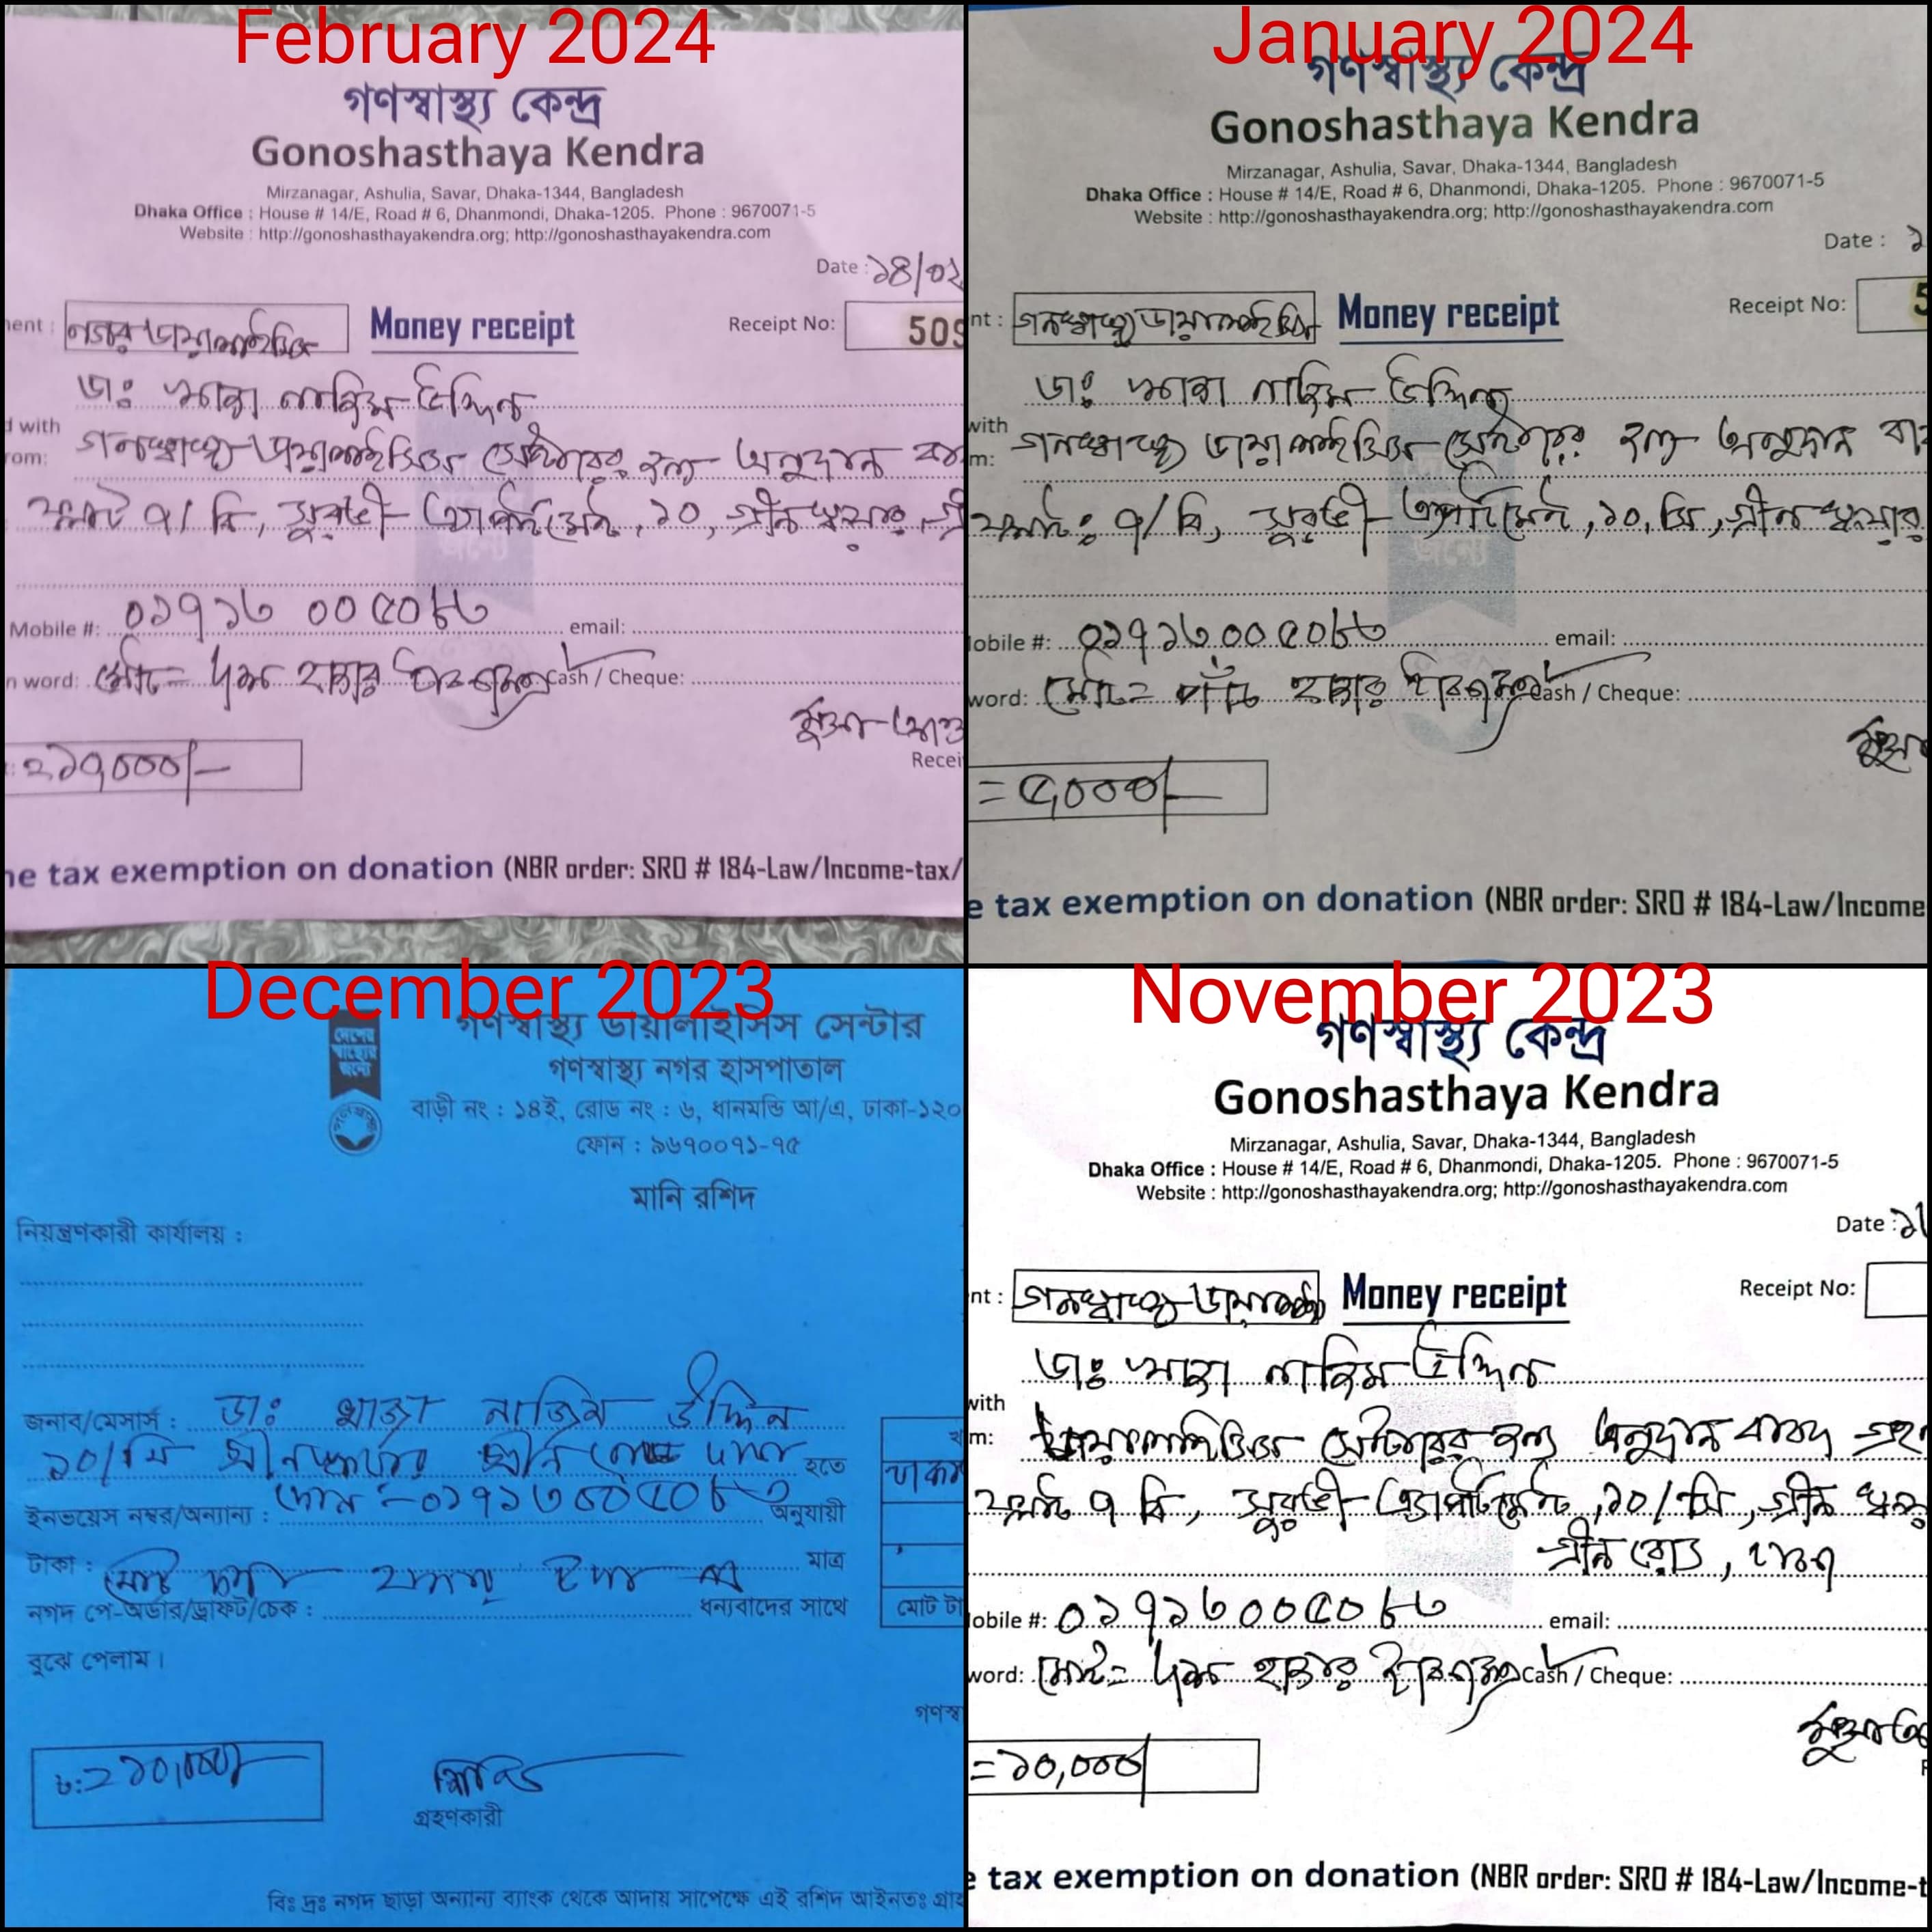 February 2024
গণস্বাস্থ্য কেন্দ্র
Gonoshasthaya Kendra
Mirzanagar, Ashulia, Savar, Dhaka-1344, Bangladesh
Dhaka Office : House # 14/E, Road # 6, Dhanmondi, Dhaka-1205. Phone : 9670071-5
Website : http://gonoshasthayakendra.org; http://gonoshasthayakendra.com
Date : ১৪/০২
ent : নগর ডায়ালাইসিস Money receipt Receipt No: 509
ডাঃ খাজা নাজিম উদ্দিন
d with
rom: গনস্বাস্থ্য ডায়ালাইসিস সেন্টারের জন্য অনুদান
ফ্লাট ৭/বি, সুরভী এ্যাপার্টমেন্ট, ১০, গ্রীন স্কয়ার,
Mobile #: ০১৭১৬ ০০৫০৮৬ email:
n word: মোট= দশ হাজার টাকা Cash / Cheque:
=১০,০০০/-
Recei
ne tax exemption on donation (NBR order: SRO # 184-Law/Income-tax/
January 2024
গণস্বাস্থ্য কেন্দ্র
Gonoshasthaya Kendra
Mirzanagar, Ashulia, Savar, Dhaka-1344, Bangladesh
Dhaka Office : House # 14/E, Road # 6, Dhanmondi, Dhaka-1205. Phone : 9670071-5
Website : http://gonoshasthayakendra.org; http://gonoshasthayakendra.com
Date : ১
nt : গনস্বাস্থ্য ডায়ালাইসিস Money receipt Receipt No: 5
ডাঃ খাজা নাজিম উদ্দিন
with
m: গনস্বাস্থ্য ডায়ালাইসিস সেন্টারের জন্য অনুদান বা
ফ্লাট: ৭/বি, সুরভী এপার্টমেন্ট, ১০, সি, গ্রীন স্কয়ার
obile #: ০১৭১৬০০৫০৮৬ email:
word: মোট= পাঁচ হাজার টাকা Cash / Cheque:
=৫,০০০/-
e tax exemption on donation (NBR order: SRO # 184-Law/Income
December 2023
গণস্বাস্থ্য ডায়ালাইসিস সেন্টার
গণস্বাস্থ্য নগর হাসপাতাল
বাড়ী নং : ১৪ই, রোড নং : ৬, ধানমন্ডি আ/এ, ঢাকা-১২০
ফোন : ৯৬৭০০৭১-৭৫
মানি রশিদ
নিয়ন্ত্রণকারী কার্যালয় :
জনাব/মেসার্স : ডাঃ খাজা নাজিম উদ্দিন
১০/সি গ্রীনস্কয়ার গ্রীন রোড ঢাকা হতে
ইনভয়েস নম্বর/অন্যান্য : ফোন :-০১৭১৬০০৫০৮৬ অনুযায়ী
টাকা : মোট দশ হাজার টাকা মাত্র
নগদ পে-অর্ডার/ড্রাফট/চেক : ধন্যবাদের সাথে
মোট টা
বুঝে পেলাম।
গণস্ব
ট:=১০,০০০/-
গ্রহণকারী
বিঃ দ্রঃ নগদ ছাড়া অন্যান্য ব্যাংক থেকে আদায় সাপেক্ষে এই রশিদ আইনতঃ গ্রাহ
November 2023
গণস্বাস্থ্য কেন্দ্র
Gonoshasthaya Kendra
Mirzanagar, Ashulia, Savar, Dhaka-1344, Bangladesh
Dhaka Office : House # 14/E, Road # 6, Dhanmondi, Dhaka-1205. Phone : 9670071-5
Website : http://gonoshasthayakendra.org; http://gonoshasthayakendra.com
Date : ১
nt : গনস্বাস্থ্য ডায়ালাই Money receipt Receipt No:
ডাঃ খাজা নাজিম উদ্দিন
with
m: ডায়ালাইসিস সেন্টারের জন্য অনুদান বাবদ
ফ্লাট ৭ বি, সুরভী এ্যাপার্টমেন্ট, ১০/সি, গ্রীন স্কয়
গ্রীন রোড, ঢাকা
obile #: ০১৭১৬০০৫০৮৬ email:
word: মোট= দশ হাজার টাকা Cash / Cheque:
=১০,০০০/
e tax exemption on donation (NBR order: SRO # 184-Law/Income-t